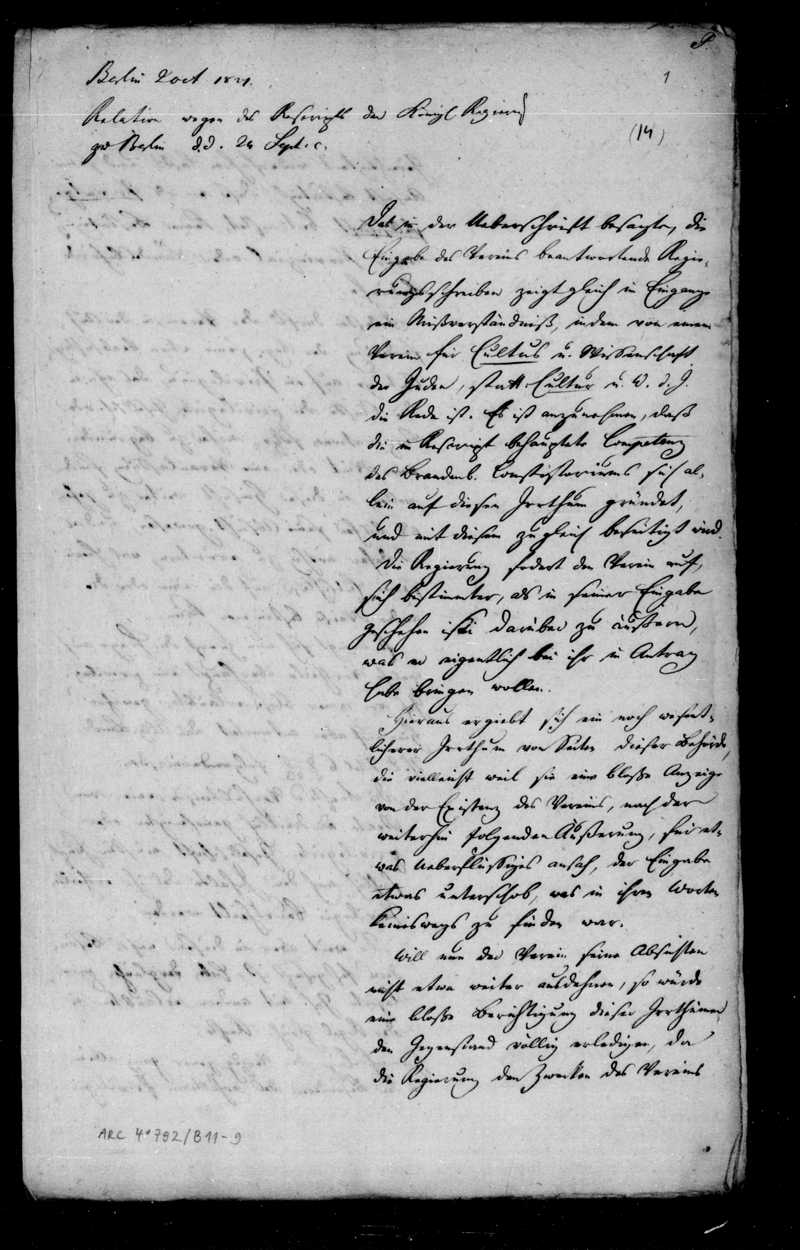 P.
1
Berlin 2 oct 1821.
Relation wegen des Rescripts der Königl Regierung
zu Berlin d.d. 24 Sept. c.
(14)
Das in der Ueberschrift besagte, die
Eingabe des Vereins beantwortende Regie-
rungsschreiben zeigt gleich im Eingange
ein Mißverständniß, indem von einem
Verein für Cultus u. Wissenschaft
der Juden, statt Cultur u. W. d. J.
die Rede ist. Es ist anzunehmen, daß
die im Rescript behauptete Competenz
des Brandenb. Consistoriums sich al-
lein auf diesen Irrthum gründet,
und mit diesem zugleich beseitigt wird.
Die Regierung fodert den Verein auf,
sich bestimmter, als in seiner Eingabe
geschehen ist darüber zu äußern,
was er eigentlich bei ihr in Antrag
habe bringen wollen.
Hieraus ergiebt sich ein noch wesent-
licherer Irrthum von Seiten dieser Behörde,
die vielleicht weil sie eine bloße Anzeige
von der Existenz des Vereins, nach der
weiterhin folgenden Äußerung, für et-
was Ueberflüssiges ansah, der Eingabe
etwas unterschob, was in ihren Worten
keineswegs zu finden war.
Will nun der Verein seine Absichten
nicht etwa weiter ausdehnen, so würde
eine bloße Berichtigung dieser Irrthümer
den Gegenstand völlig erledigen, da
die Regierung den Zwecken des Vereins
ARC 4° 792/B11-9